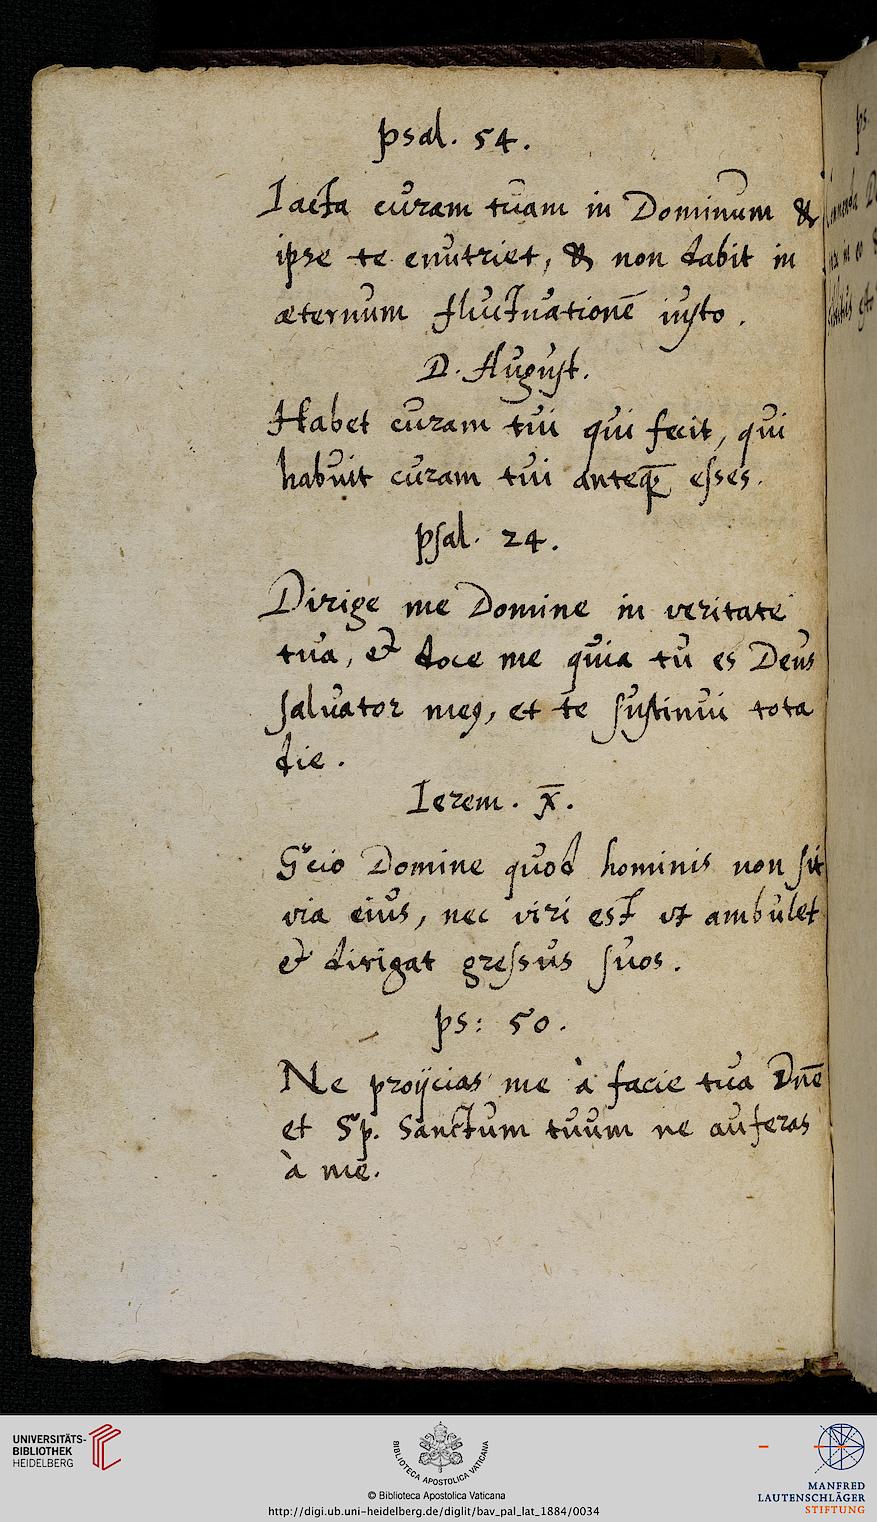 psal. 54.
Iacta curam tuam in Dominum &
ipse te enutriet, & non dabit in
æternum fluctuationē iusto.
D. August.
Habet curam tui qui fecit, qui
habuit curam tui anteq̄ esses.
psal. 24.
Dirige me Domine in veritate
tua, et doce me quia tu es Deus
saluator meꝰ, et te sustinui tota
die.
Ierem. x̄.
Scio Domine quod hominis non sit
via eius, nec viri est vt ambulet
et dirigat gressus suos.
ps: 50.
Ne proijcias me à facie tua Dnē
et Sp. Sanctum tuum ne auferas
à me.
UNIVERSITÄTS-
BIBLIOTHEK
HEIDELBERG
BIBLIOTECA APOSTOLICA VATICANA
© Biblioteca Apostolica Vaticana
http://digi.ub.uni-heidelberg.de/diglit/bav_pal_lat_1884/0034
MANFRED
LAUTENSCHLÄGER
STIFTUNG